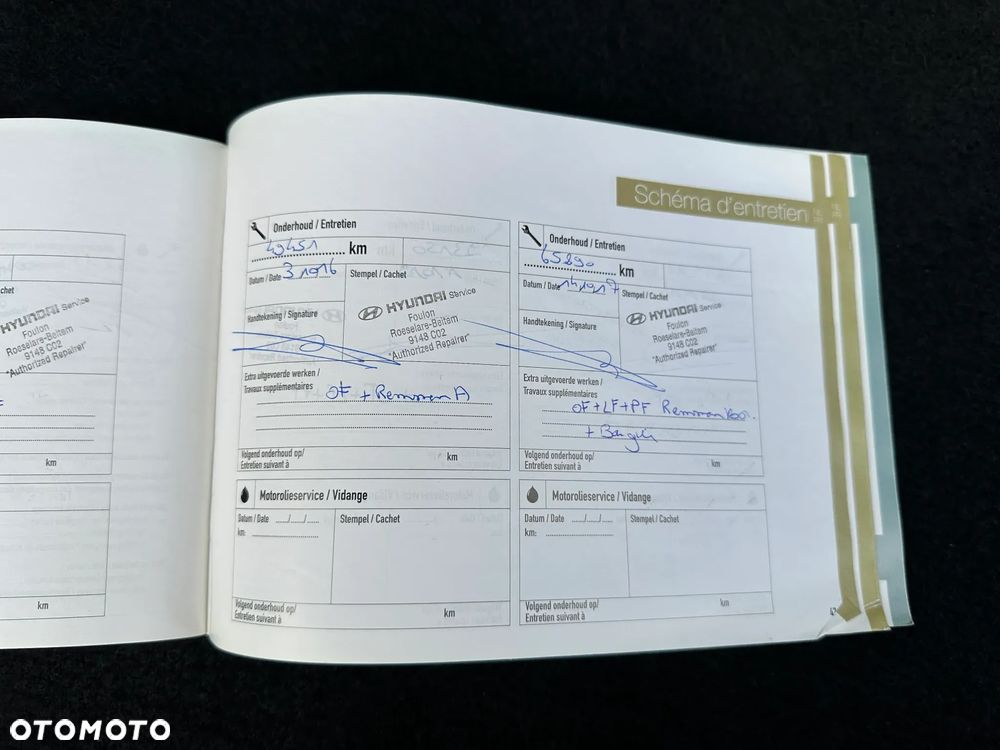 Schéma d'entretien
Onderhoud / Entretien
49451 km
Datum / Date
Stempel / Cachet
Handtekening / Signature
HYUNDAI Service
Foulon
Roeselare-Beitem
9148 C02
"Authorized Repairer"
Extra uitgevoerde werken /
Travaux supplémentaires
OF + Remmen A
Volgend onderhoud op/
Entretien suivant à
km
Motorolieservice / Vidange
Datum / Date ..../..../....
Stempel / Cachet
km:
Volgend onderhoud op/
Entretien suivant à
km
Onderhoud / Entretien
65890 km
Datum / Date
Stempel / Cachet
Handtekening / Signature
HYUNDAI Service
Foulon
Roeselare-Beitem
9148 C02
"Authorized Repairer"
Extra uitgevoerde werken /
Travaux supplémentaires
OF+LF+PF Remmen
Volgend onderhoud op/
Entretien suivant à
km
Motorolieservice / Vidange
Datum / Date ..../..../....
Stempel / Cachet
km:
Volgend onderhoud op/
Entretien suivant à
km
HYUNDAI Service
Foulon
Roeselare-Beitem
9148 C02
"Authorized Repairer"
km
km
OTOMOTO